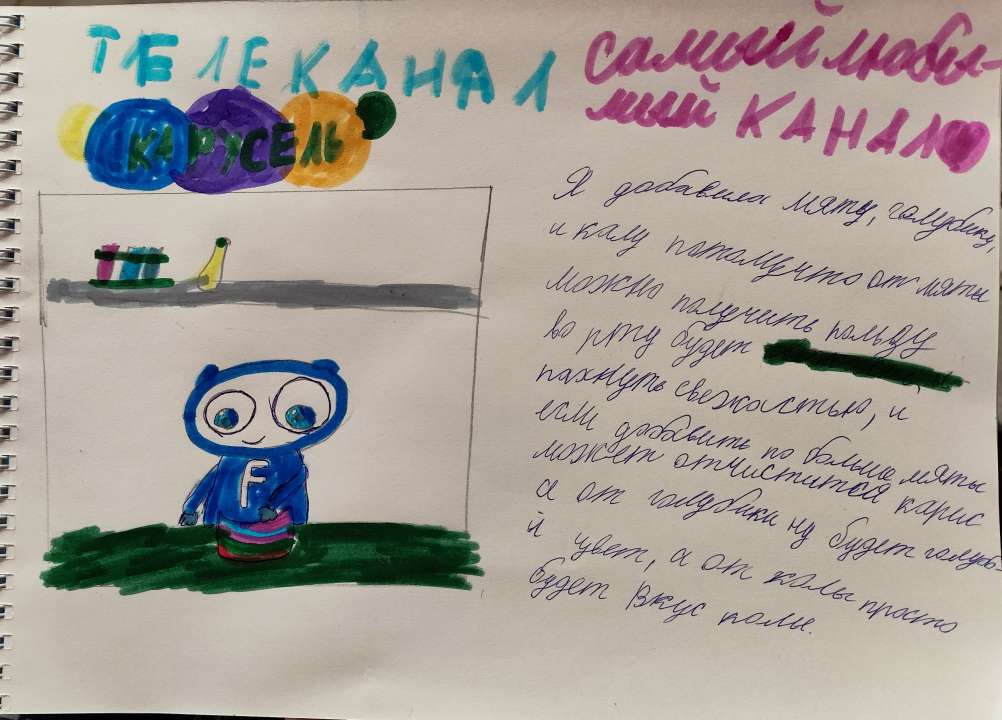 ТЕЛЕКАНАЛ
КАРУСЕЛЬ
самый люби-
мый КАНАЛ
F
Я добавила мяту, голубику,
и колу потомучто от мяты
можно получить польду
во рту будет
пахнуть свежастью, и
если добавить по больше мяты
может отчистится карис
а от голубики ну будет голубо-
й цвет, а от колы просто
будет вкус колы.